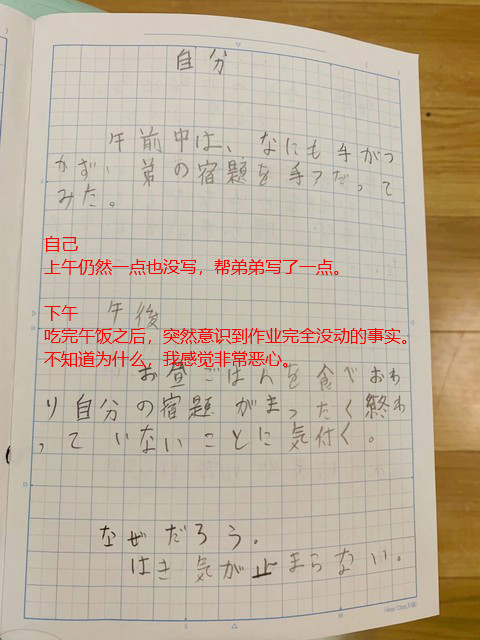 自分
午前中は、なにも手がつ
かず、弟の宿題を手つだって
みた。
自己
上午仍然一点也没写，帮弟弟写了一点。
下午
午後
吃完午饭之后，突然意识到作业完全没动的事实。
不知道为什么，我感觉非常恶心。
お昼ごはんを食べおわ
り自分の宿題がまったく終わ
っていないことに気付く。
なぜだろう。
はき気が止まらない。